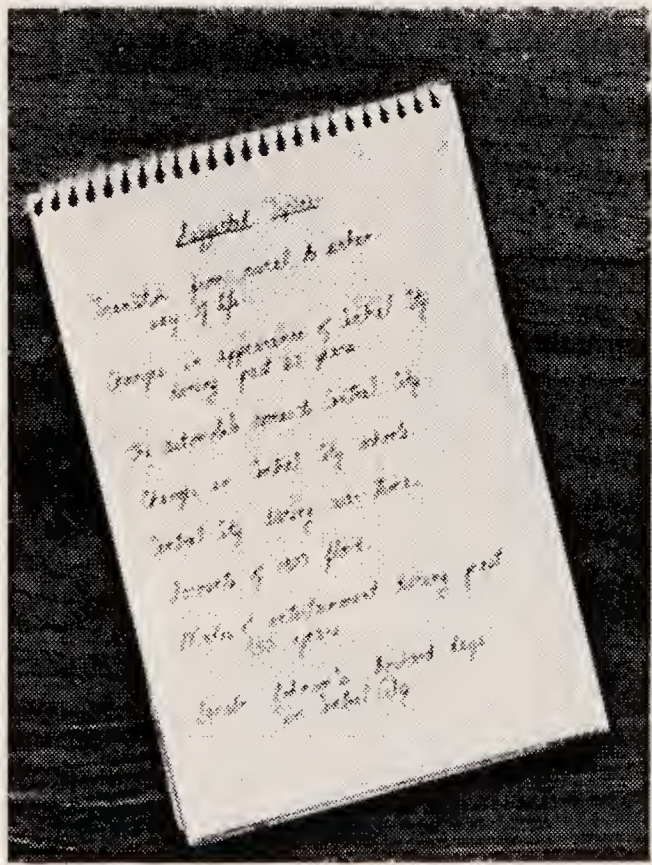 Suggested Topics
Transition from rural to urban
way of life
Changes in appearance of Central City
during past 25 years
The automobile comes to Central City
Changes in Central City schools
Central City during war time
Accounts of flood
Modes of entertainment during past
years
Senator boyhood days
in Central City